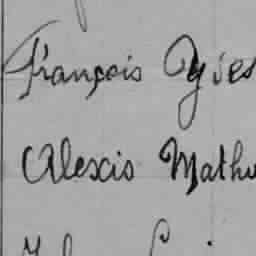 François Yves
Alexis Mathu